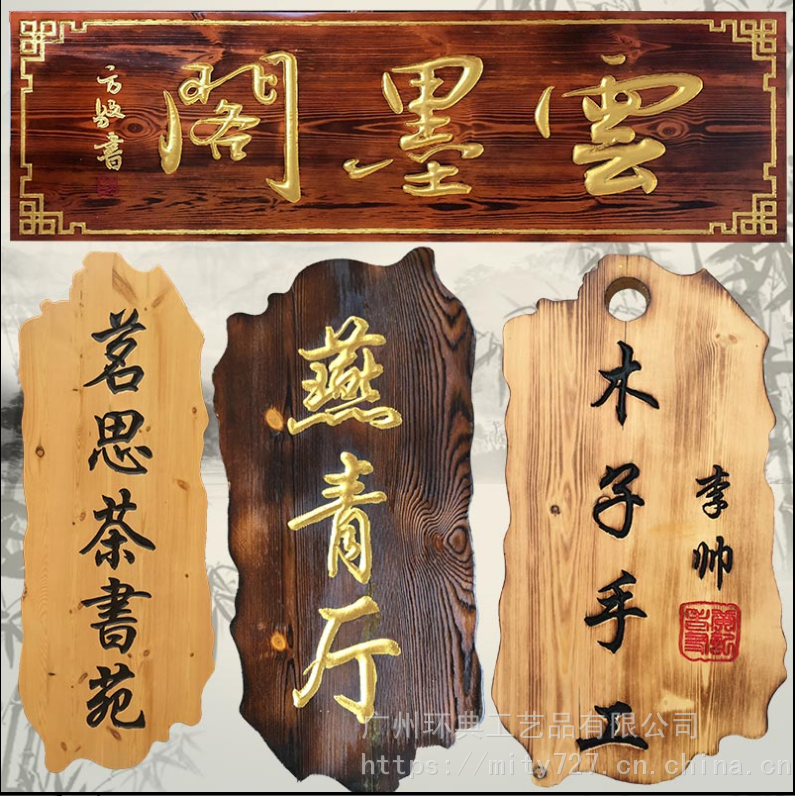 雲墨閣
方毅書
茗思茶書苑
燕青厅
木子手工
李帅
广州环典工艺品有限公司
https://mity727.cn.china.cn